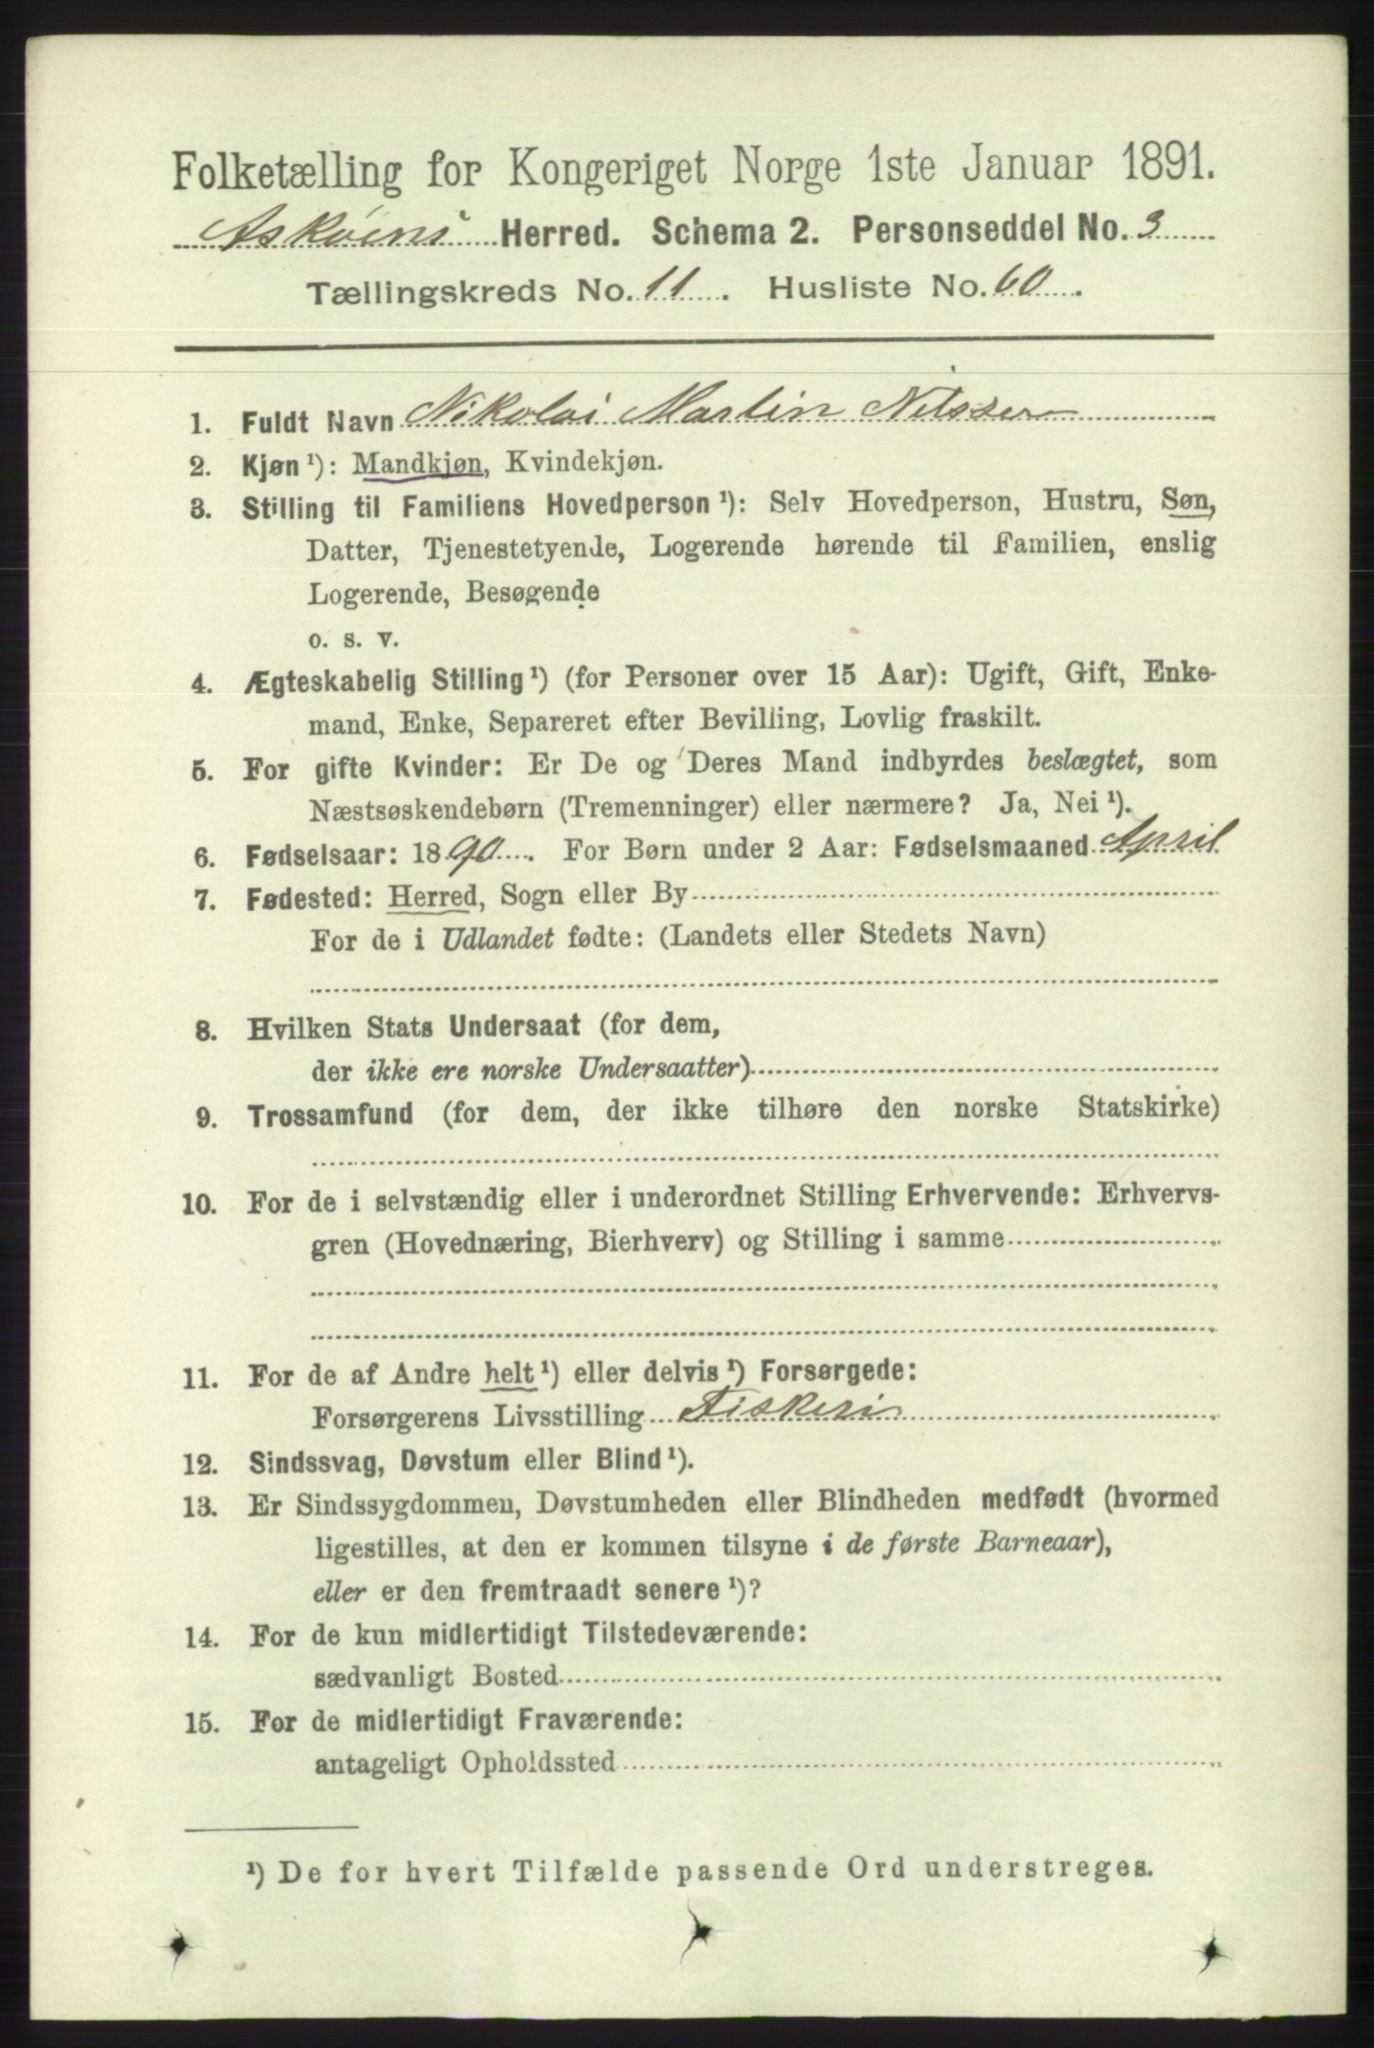 Folketælling for Kongeriget Norge 1ste Januar 1891.
Askøens Herred. Schema 2. Personseddel No. 3
Tællingskreds No. 11. Husliste No. 60.
1. Fuldt Navn Nikolai Martin Nilssen
2. Kjøn¹): Mandkjøn, Kvindekjøn.
3. Stilling til Familiens Hovedperson¹): Selv Hovedperson, Hustru, Søn,
Datter, Tjenestetyende, Logerende hørende til Familien, enslig
Logerende, Besøgende
o. s. v.
4. Ægteskabelig Stilling¹) (for Personer over 15 Aar): Ugift, Gift, Enke-
mand, Enke, Separeret efter Bevilling, Lovlig fraskilt.
5. For gifte Kvinder: Er De og Deres Mand indbyrdes beslægtet, som
Næstsøskendebørn (Tremenninger) eller nærmere? Ja, Nei¹).
6. Fødselsaar: 1890. For Børn under 2 Aar: Fødselsmaaned April
7. Fødested: Herred, Sogn eller By
For de i Udlandet fødte: (Landets eller Stedets Navn)
8. Hvilken Stats Undersaat (for dem,
der ikke ere norske Undersaatter)
9. Trossamfund (for dem, der ikke tilhøre den norske Statskirke)
10. For de i selvstændig eller i underordnet Stilling Erhvervende: Erhvervs-
gren (Hovednæring, Bierhverv) og Stilling i samme
11. For de af Andre helt¹) eller delvis¹) Forsørgede:
Forsørgerens Livsstilling Fiskeri
12. Sindssvag, Døvstum eller Blind¹).
13. Er Sindssygdommen, Døvstumheden eller Blindheden medfødt (hvormed
ligestilles, at den er kommen tilsyne i de første Barneaar),
eller er den fremtraadt senere¹)?
14. For de kun midlertidigt Tilstedeværende:
sædvanligt Bosted
15. For de midlertidigt Fraværende:
antageligt Opholdssted
¹) De for hvert Tilfælde passende Ord understreges.